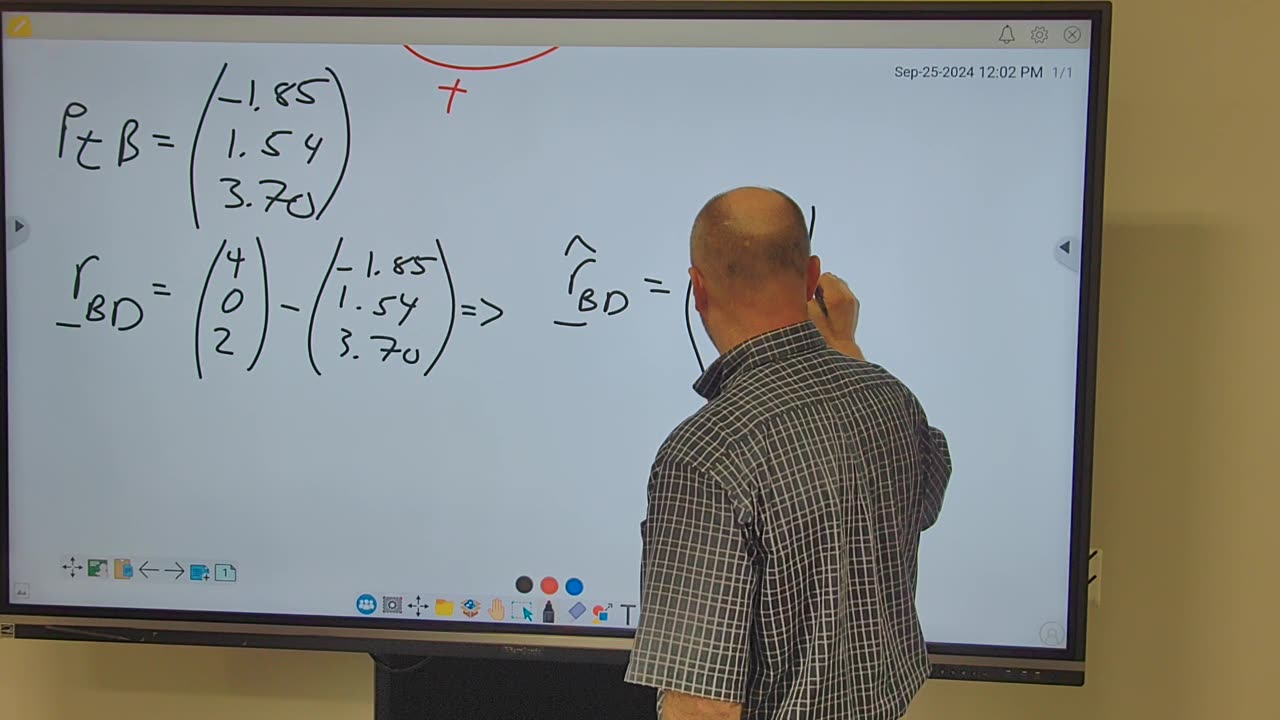 Sep-25-2024 12:02 PM 1/1
+
Pt B = (-1.85
1.54
3.70)
r_BD = (4
0
2) - (-1.85
1.54
3.70) => r̂_BD = (
1
T